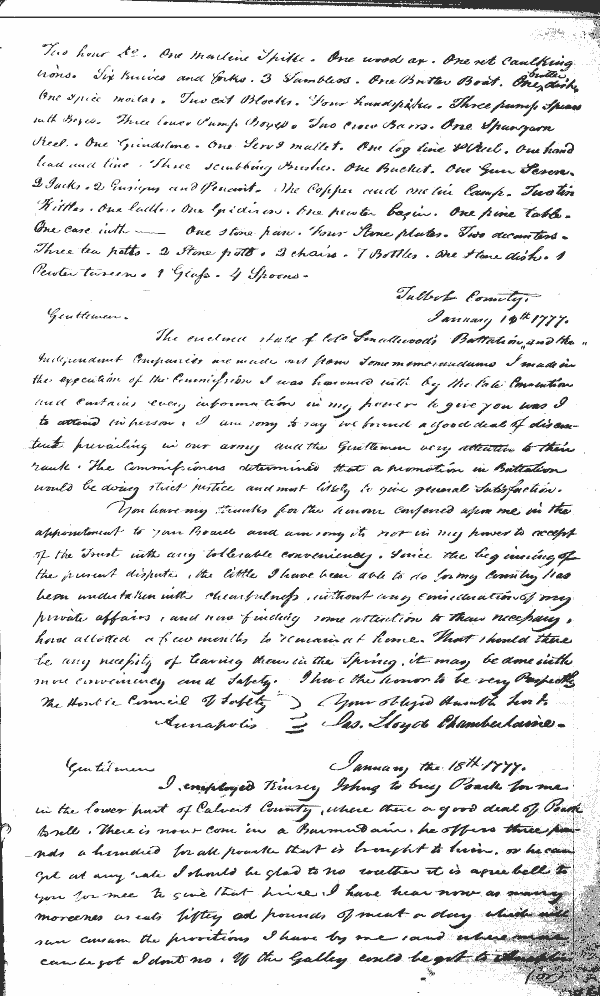 Two hour Do. One machine Spike. One wood ax. One set Caulking
irons. Six Knives and forks. 3 Tumblers. One Butter Boat. One butter dish.
One spice mortar. Two cat Blocks. Four handspikes. Three pump Spears
with Boxes. Three lower Pump Boxes. Two Crow Barrs. One Spunyarn
Reel. One Grindstone. One Serv'g mallet. One log line & Reel. One hand
lead and line. Three scrubbing Brushes. One Bucket. One Gun
2 Jacks. 2 Ensigns and Penant. One Copper and one tin Lamp. Two tin
Kittles. One ladle. One Gridiron. One pewter bason. One pine table.
One case with —— One stone pan. Four Stone plates. Two decanters.
Three tea potts. 2 Stone potts. 2 chairs. 7 Bottles. One Stone dish. 1
Pewter tureen. 1 Glass. 4 Spoons.
Talbot County.
January 18th 1777.
Gentlemen.
The enclosed state of Colo Smallwood's Battalion, and the
Independent Companies are made out from some memorandums I made in
the execution of the Commission I was honoured with by the late Convention
and contains every information in my power to give you was I
to attend in person. I am sorry to say we found a good deal of discon-
tent prevailing in our army and the Gentlemen very attentive to their
rank. The Commissioners determined that a promotion in Battalion
would be doing strict justice and most likely to give general Satisfaction.
You have my thanks for the honour conferred upon me in the
appointment to your Board and am sorry its not in my power to accept
of the Trust with any tollerable conveniency. Since the beginning of
the present dispute, the little I have been able to do for my Country has
been undertaken with chearfulness, without any consideration of my
private affairs, and now finding some attention to them necessary,
have allotted a few months to remain at home. That should there
be any necessity of leaving them in the Spring, it may be done with
more conveniency and Safety. I have the honor to be very Respectfully
The Honble Council of Safety } Your obliged Humble Servt.
Annapolis Jas. Lloyd Chamberlaine.
Gentlemen January the 18th 1777.
I employed Kinsey to buy Poark for me
in the lower part of Calvert County, where there a good deal of Poark
to sell. There is now com in a Burmudain, he offers three pou-
nds a hundred for all poark that is brought to him, or he can
get at any rate I should be glad to no wether it is agreebell to
you for mee to give that price I have hear now as many
as eats fifty od pounds of meat a day which will
sun consum the provitions I have by me and where more
can be got I dont no. If the Galley could be got to
(or)